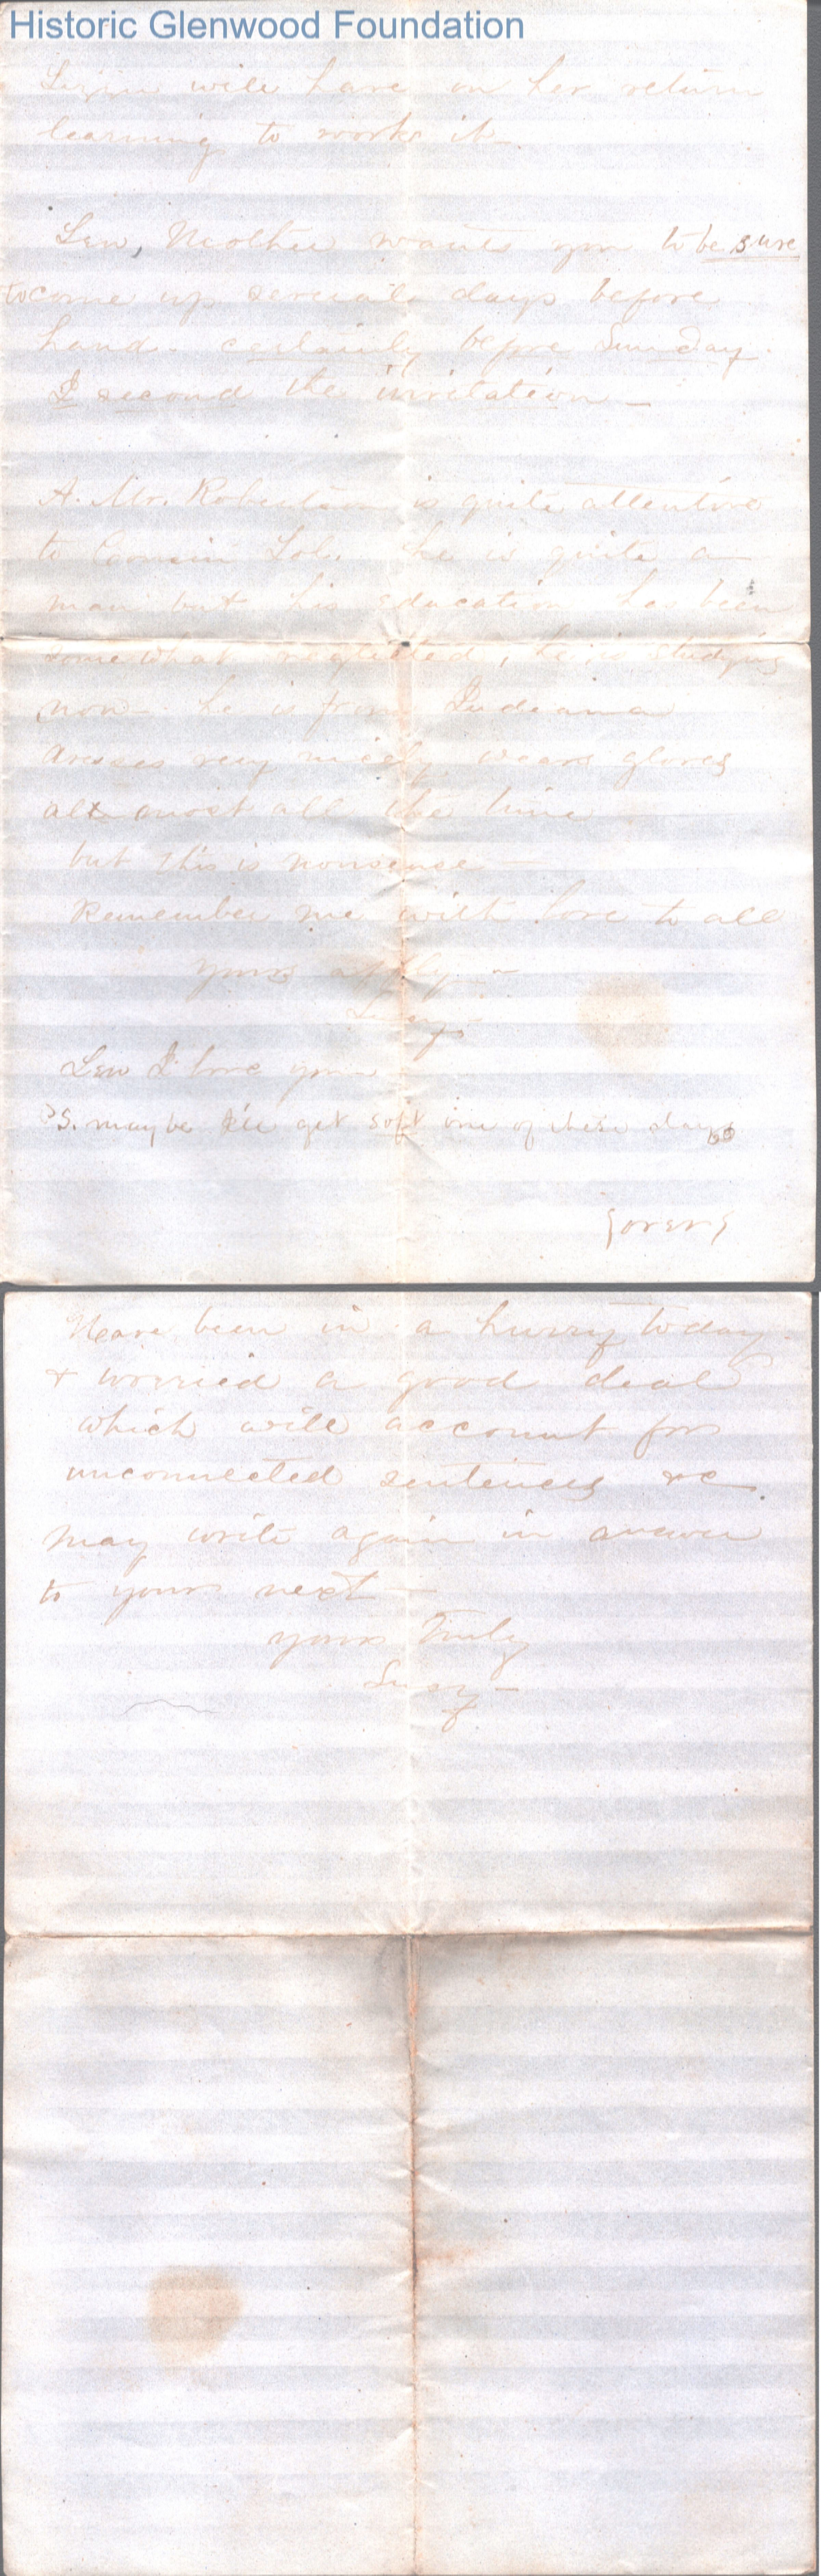 Historic Glenwood Foundation
Lizzie will have on her return
learning to work it
Lew, Mother wants you to be sure
to come up severals days before
hand. certainly before Sunday.
I second the invitation —
A. Mr. Robertson is quite attentive
to Cousin Lob. he is quite a
man but his education has been
somewhat neglected, he is studying
now — he is from Indeiana
dresses very nicely wears gloves
all most all the time
but this is nonsense —
Remember me with love to all
yours affly —
Susy
Lew I love you
PS. maybe I'll get soft one of these days
Have been in a hurry today
+ worried a good deal
which will account for
unconnected sentences &c.
May write again in answer
to yours next —
yours Truly
Susy —